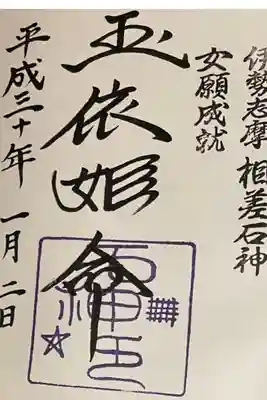 伊勢志摩 相差石神
女願成就
玉依姫命
平成三十年 一月二日
石神之印